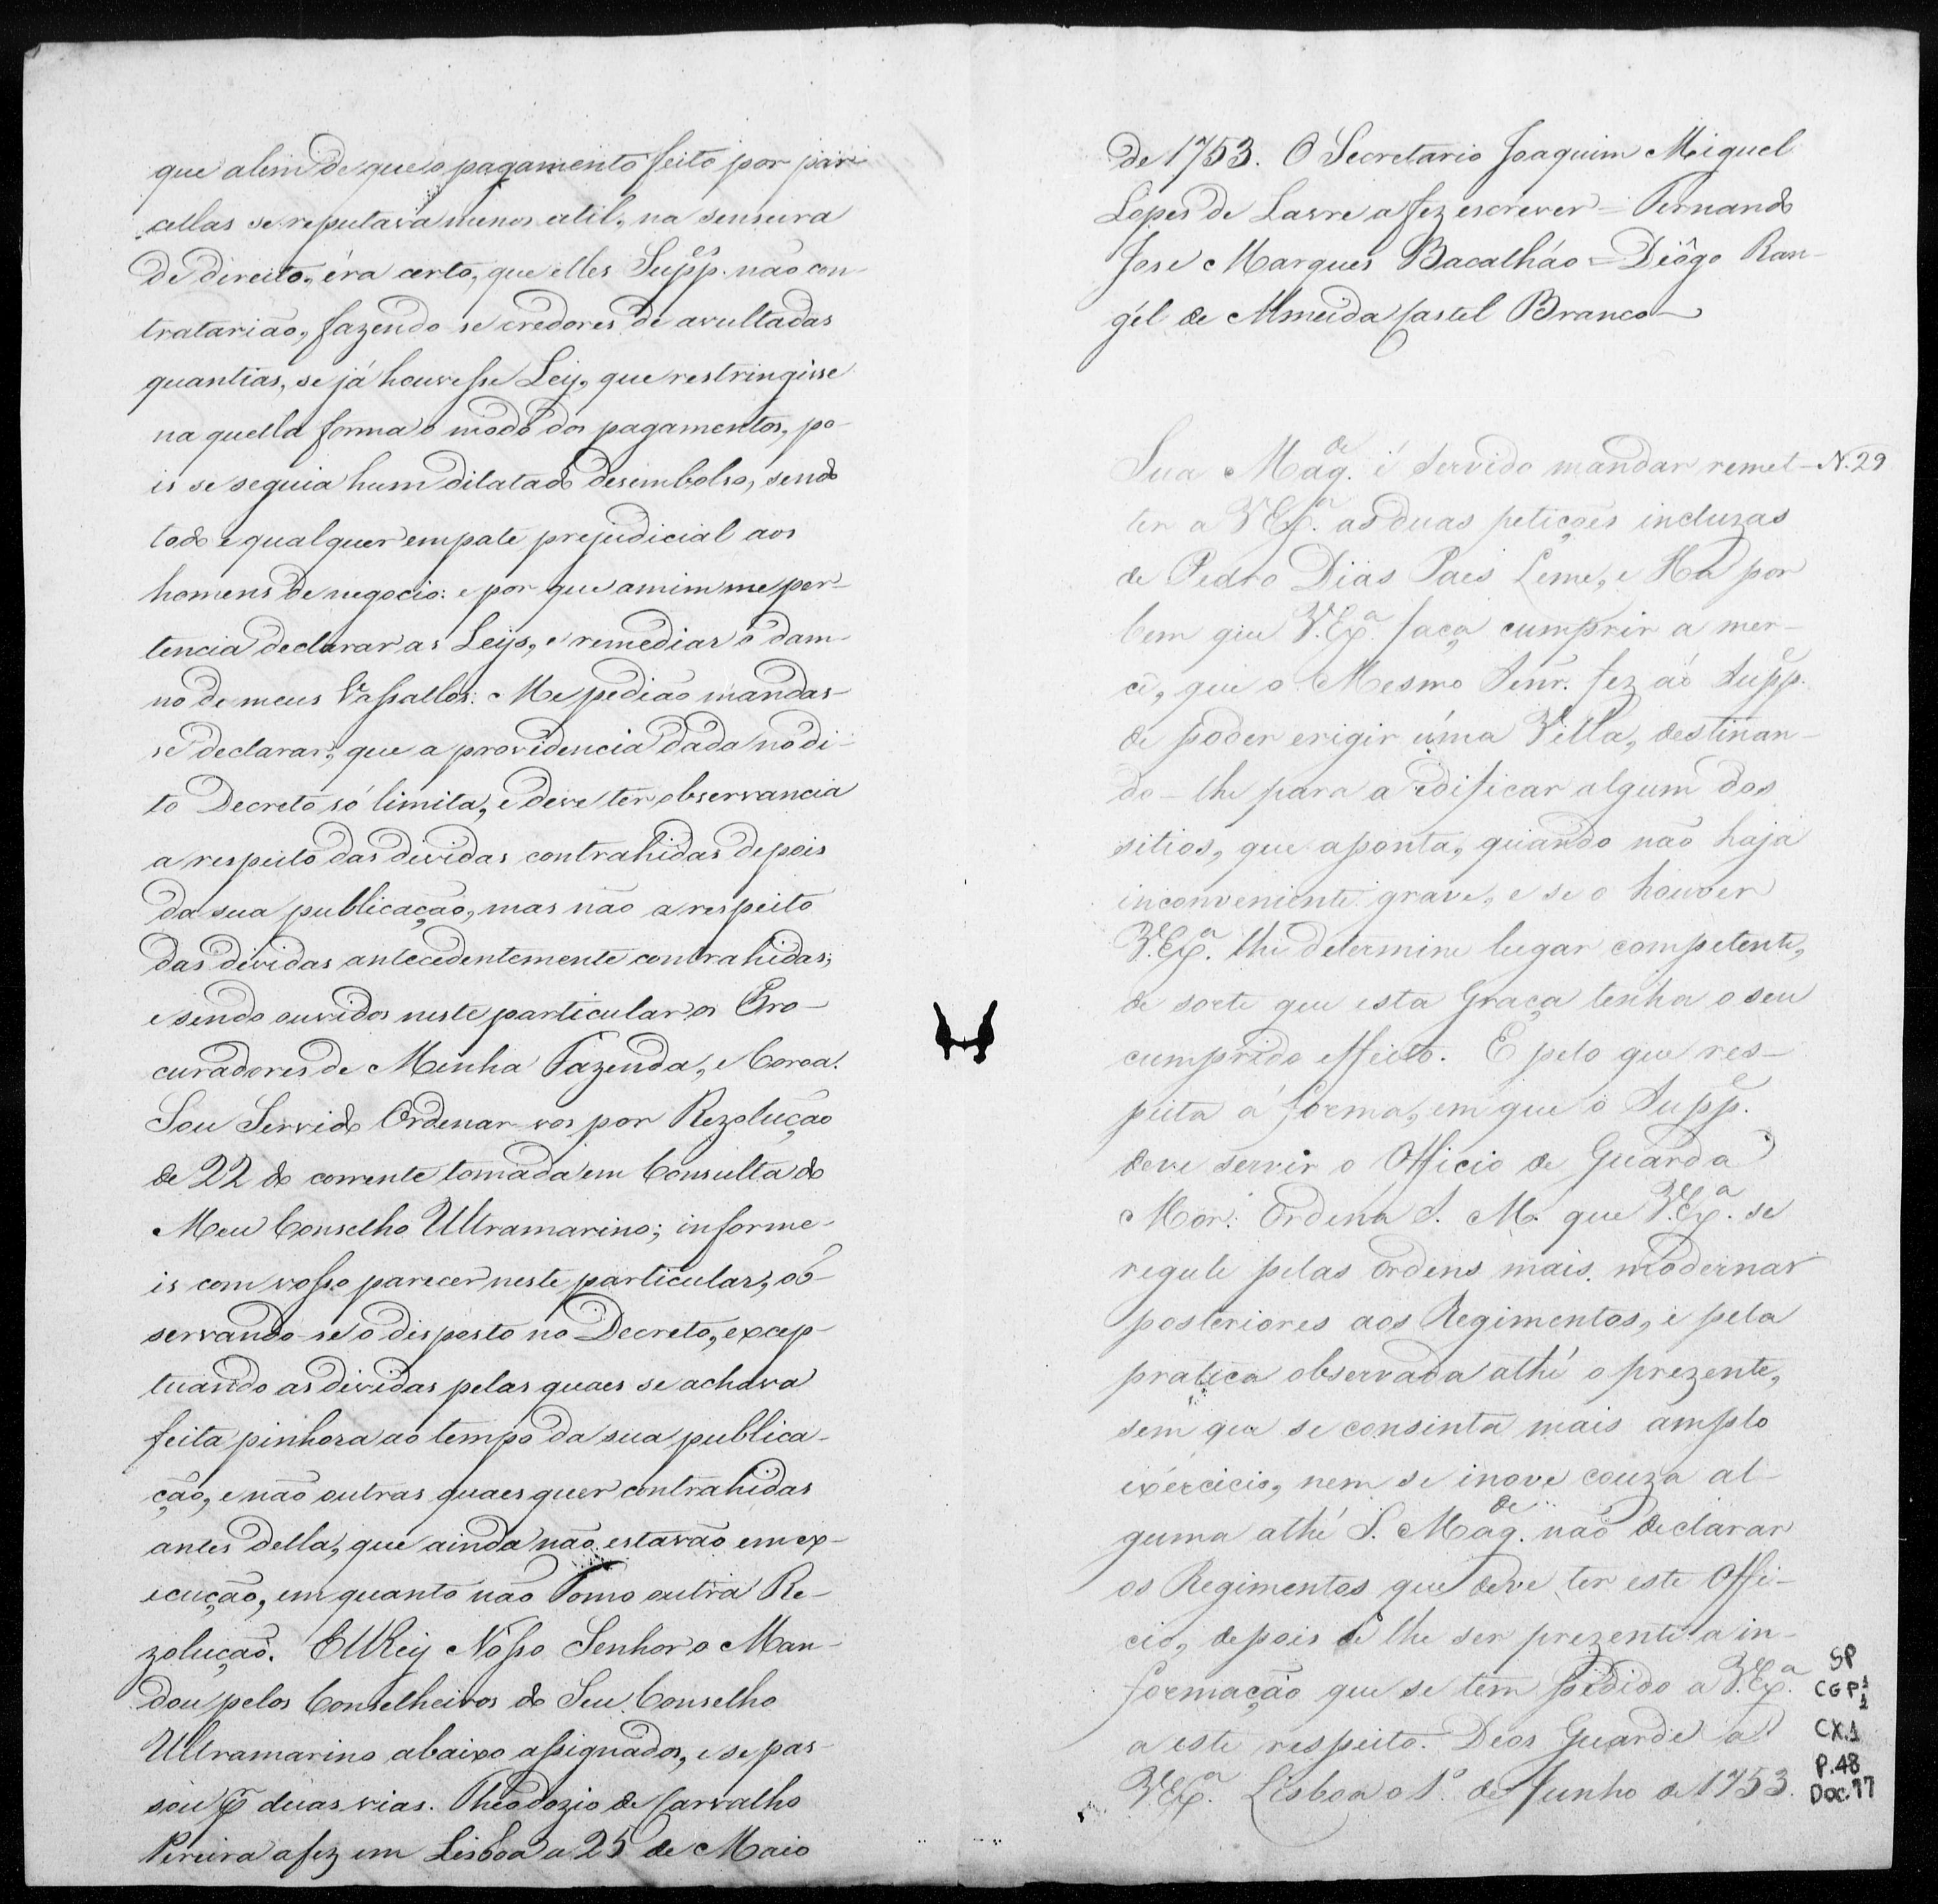 que alem de que o pagamento feito por par
cellas se reputava menos util, na senseira
de direito, éra certo, que elles Supp.es não con-
tratarião, fazendo se credores de avultadas
quantias, se já houvesse Ley, que restringisse
na quella forma o modo dos pagamentos, po-
is se seguia hum dilatado desembolso, sendo
todo e qualquer empate prejudicial aos
homens de negocio: e por que amim me per-
tencia declarar as Leys, e remediar o dam-
no de meus Vassallos: Me pedião mandas-
se declarar, que a providencia dada no di-
to Decreto só limita, e deve ter observancia
a respeito das dividas contrahidas depois
da sua publicação, mas não a respeito
das dividas antecedentemente contrahidas;
e sendo ouvidos neste particular os Pro-
curadores de Minha Fazenda, e Coroa!
Sou Servido Ordenar vos por Rezolução
de 22 do corrente tomada em Consulta do
Meu Conselho Ultramarino; informe-
is com vosso parecer neste particular, ob-
servando-se o disposto no Decreto, excep-
tuando as dividas pelas quaes se achava
feita pinhora ao tempo da sua publica-
ção, e não outras quaes quer contrahidas
antes della, que ainda não estavão em ex-
ecução, em quanto não Tomo outra Re-
zolução. ElRey Nosso Senhor o Man-
dou pelos Conselheiros do Seu Conselho
Ultramarino abaixo assignados, e se pas-
sou p. duas vias. Theodozio de Carvalho
Pereira a fez em Lisboa a 25 de Maio
de 1753. O Secretario Joaquim Miguel
Lopes de Lavre a fez escrever = Fernando
Jose Marques Bacalháo = Diôgo Ran-
gél de Almeida Castel Branco
Sua Mag.de é servido mandar remet- N. 29
ter a V Ex.a as duas petições incluzas
de Pedro Dias Paes Leme, e Ha por
bem que V. Ex.a faca cumprir a mer-
cê, que o Mesmo Senr. fez áo Supp.e
de poder erigir úma Villa, destinan-
do-lhe para a edificar algum dos
sitios, que aponta, quando não haja
inconveniente grave, e se o houver
V. Ex.a lhe determine lugar competente,
de sorte que esta Graça tenha o seu
cumprido effeito. E pelo que res-
peita á forma, em que o Supp.e
deve servir o Officio de Guarda
Mór: Ordena S. M. que V. Ex.a se
regule pelas ordens mais modernas
posteriores aos Regimentos, e pela
pratica observada athé o prezente,
sem que se consinta mais amplo
exércicio, nem se inove couza al-
guma athé S. Mag.de não declarar
os Regimentos que deve ter este Offi-
cio, depois de lhe ser prezente a in-
formação que se tem pedido a V. Ex.a
a este respeito. Deos Guarde a
V. Ex.a Lisboa o 1º. de Junho de 1753.
SP
CGP 1/1
CX.1
P.48
Doc.17